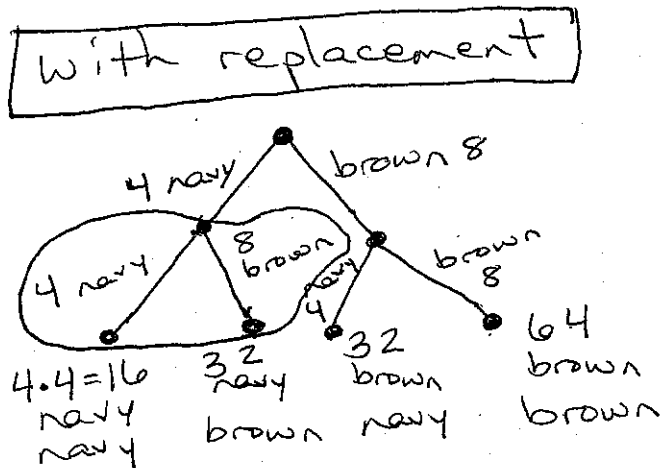 with replacement
4 navy
brown 8
4 navy
8
brown
navy
4
brown
8
4.4=16
navy
navy
32
navy
brown
32
brown
navy
64
brown
brown